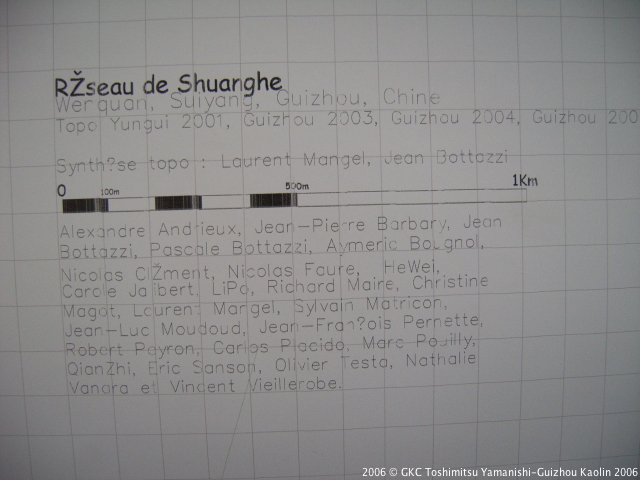 RŽseau de Shuanghe
Werquan, Suiyang, Guizhou, Chine
Topo Yungui 2001, Guizhou 2003, Guizhou 2004, Guizhou 200
Synth?se topo : Laurent Mangel, Jean Bottazzi
0 100m 500m 1Km
Alexandre Andrieux, Jean-Pierre Barbary, Jean
Bottazzi, Pascale Bottazzi, Aymeric Bougnol,
Nicolas ClŽment, Nicolas Faure, HeWei,
Carole Jalbert, LiPo, Richard Maire, Christine
Magot, Laurent Mangel, Sylvain Matricon,
Jean-Luc Moudoud, Jean-Fran?ois Pernette,
Robert Peyron, Carlos Placido, Marc Pouilly,
QianZhi, Eric Sanson, Olivier Testa, Nathalie
Vanara et Vincent Vieillerobe.
2006 © GKC Toshimitsu Yamanishi-Guizhou Kaolin 2006